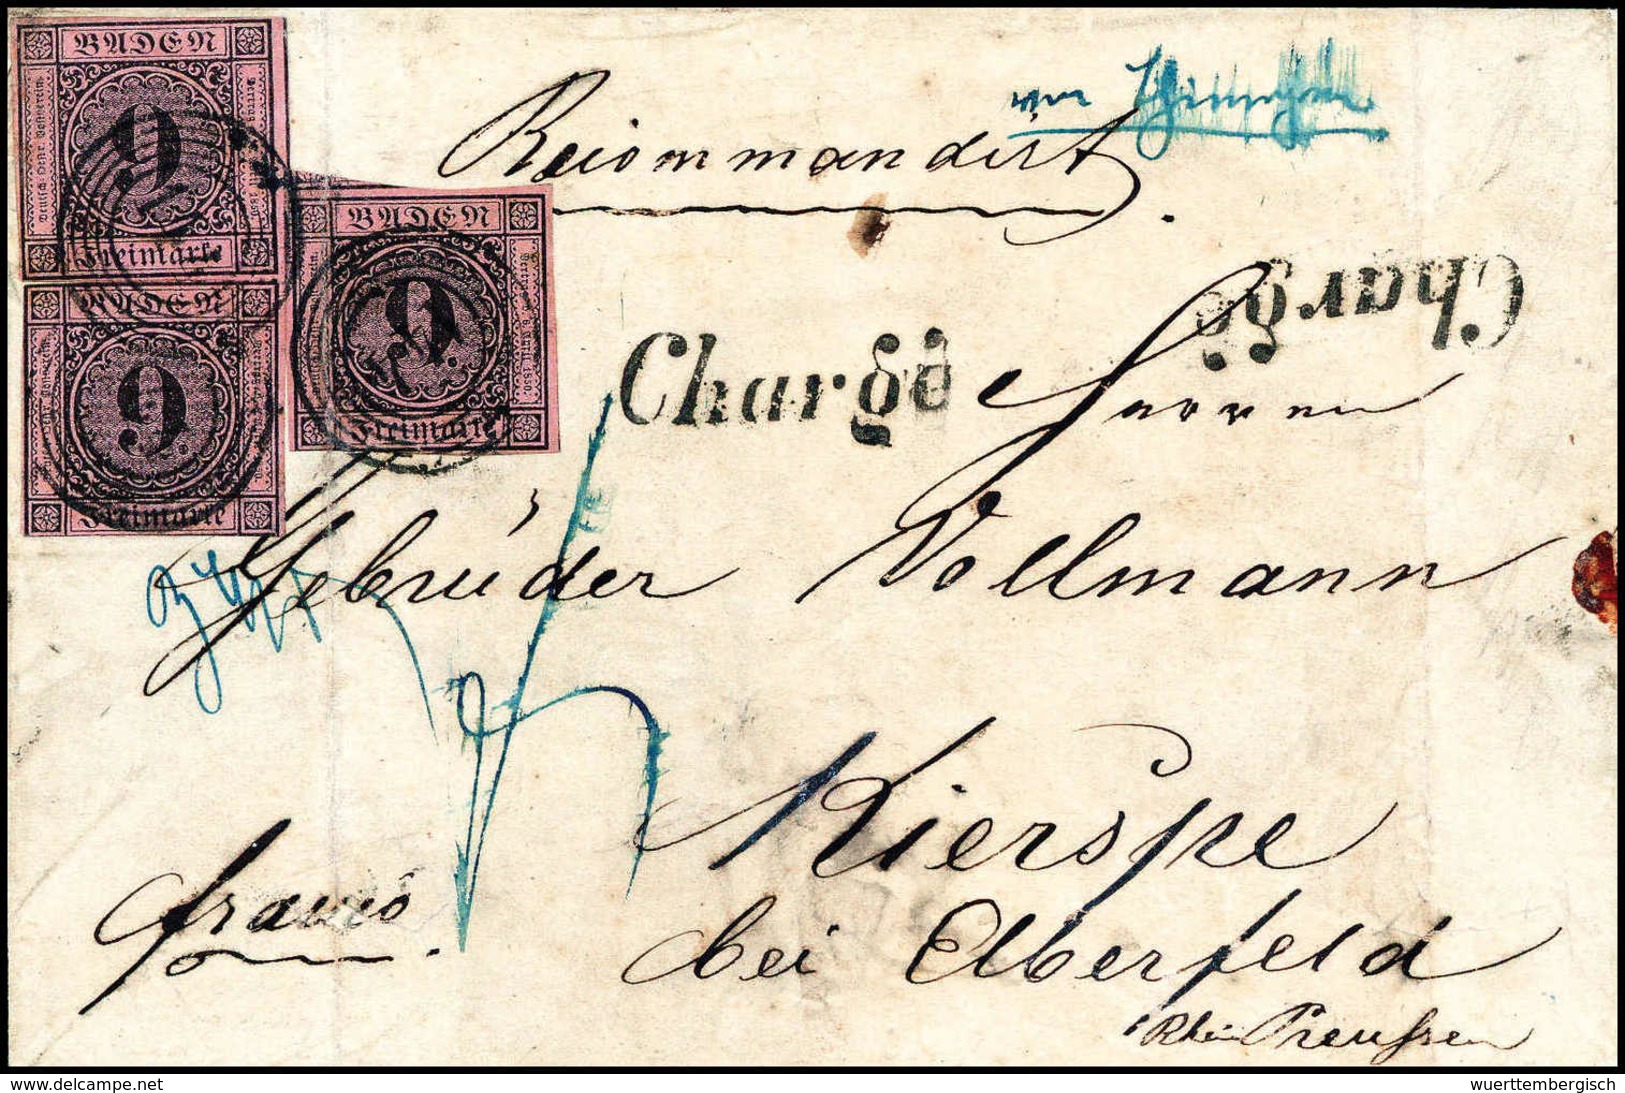 BADEN
9
Freimarke
BADEN
9.
Freimarke
BADEN
9.
Freimarke
Recommandirt.
Chargé
Chargé
Herren
Gebrüder Vollmann
Kierspe
bei Elberfeld
Rhein Preussen
franco.
www.delcampe.net
wuerttembergisch